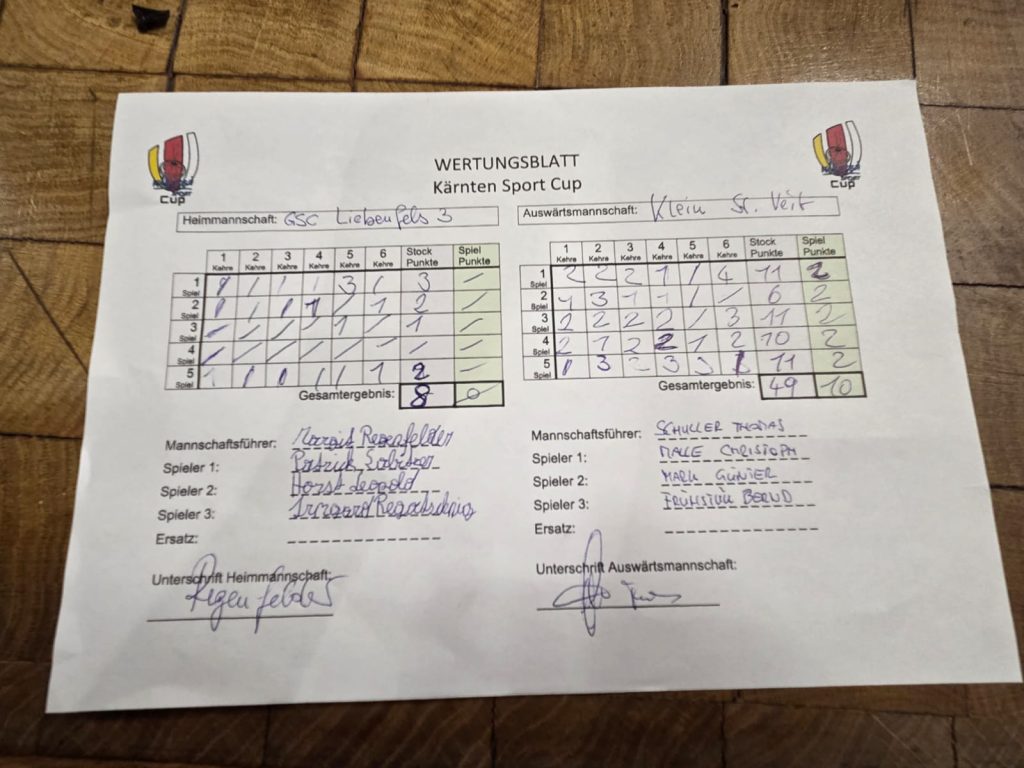 WERTUNGSBLATT
Kärnten Sport Cup
Cup
Cup
Heimmannschaft: GSC Liebenfels 3
1 Kehre 2 Kehre 3 Kehre 4 Kehre 5 Kehre 6 Kehre Stock Punkte Spiel Punkte
1 Spiel / / / / 3 / 3 /
2 Spiel / / / 1 / 1 2 /
3 Spiel / / / / 1 / 1 /
4 Spiel / / / / / / / /
5 Spiel / / / / / 1 2 /
Gesamtergebnis: 8 0
Mannschaftsführer: Regenfelder
Spieler 1: Patrick
Spieler 2: Horst Leopold
Spieler 3: Irmgard
Ersatz:
Unterschrift Heimmannschaft:
Regenfelder
Auswärtsmannschaft: Klein St. Veit
1 Kehre 2 Kehre 3 Kehre 4 Kehre 5 Kehre 6 Kehre Stock Punkte Spiel Punkte
1 Spiel 2 2 2 1 / 4 11 2
2 Spiel 1 3 1 1 / / 6 2
3 Spiel 2 2 2 2 / 3 11 2
4 Spiel 2 1 2 2 1 2 10 2
5 Spiel / 3 2 3 3 / 11 2
Gesamtergebnis: 49 10
Mannschaftsführer: SCHULLER THOMAS
Spieler 1: MALLE CHRISTOPH
Spieler 2: GÜNTER
Spieler 3: BERND
Ersatz:
Unterschrift Auswärtsmannschaft: